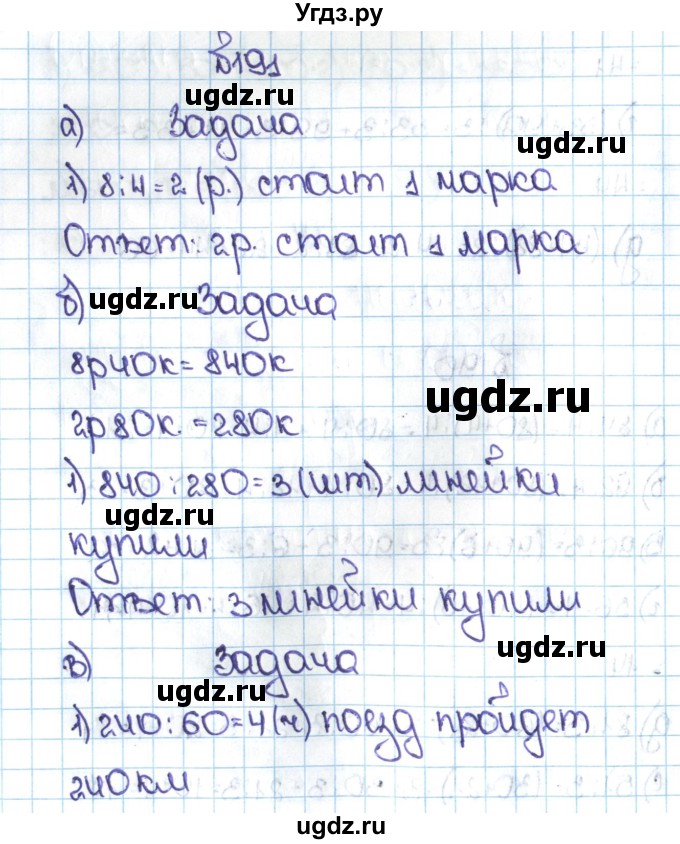 Угдз.ру
№191
ugdz.ru
а) Задача
ugdz.ru
1) 8:4=2 (р.) стоит 1 марка
Ответ: 2р. стоит 1 марка
б) ugdz.ru Задача
8р40к=840к
ugdz.ru
2р80к.=280к
1) 840:280=3 (шт.) линейки
ugdz.ru
купили
Ответ: 3 линейки купили
ugdz.ru
в) Задача
ugdz.ru
1) 240:60=4(ч) поезд пройдет
240км
ugdz.ru